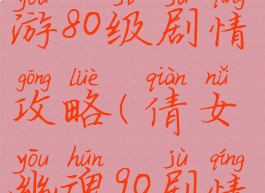 游80级剧情
gōng lüè qiàn nǚ
攻略(倩女
yōu hún jù qíng
幽魂90剧情